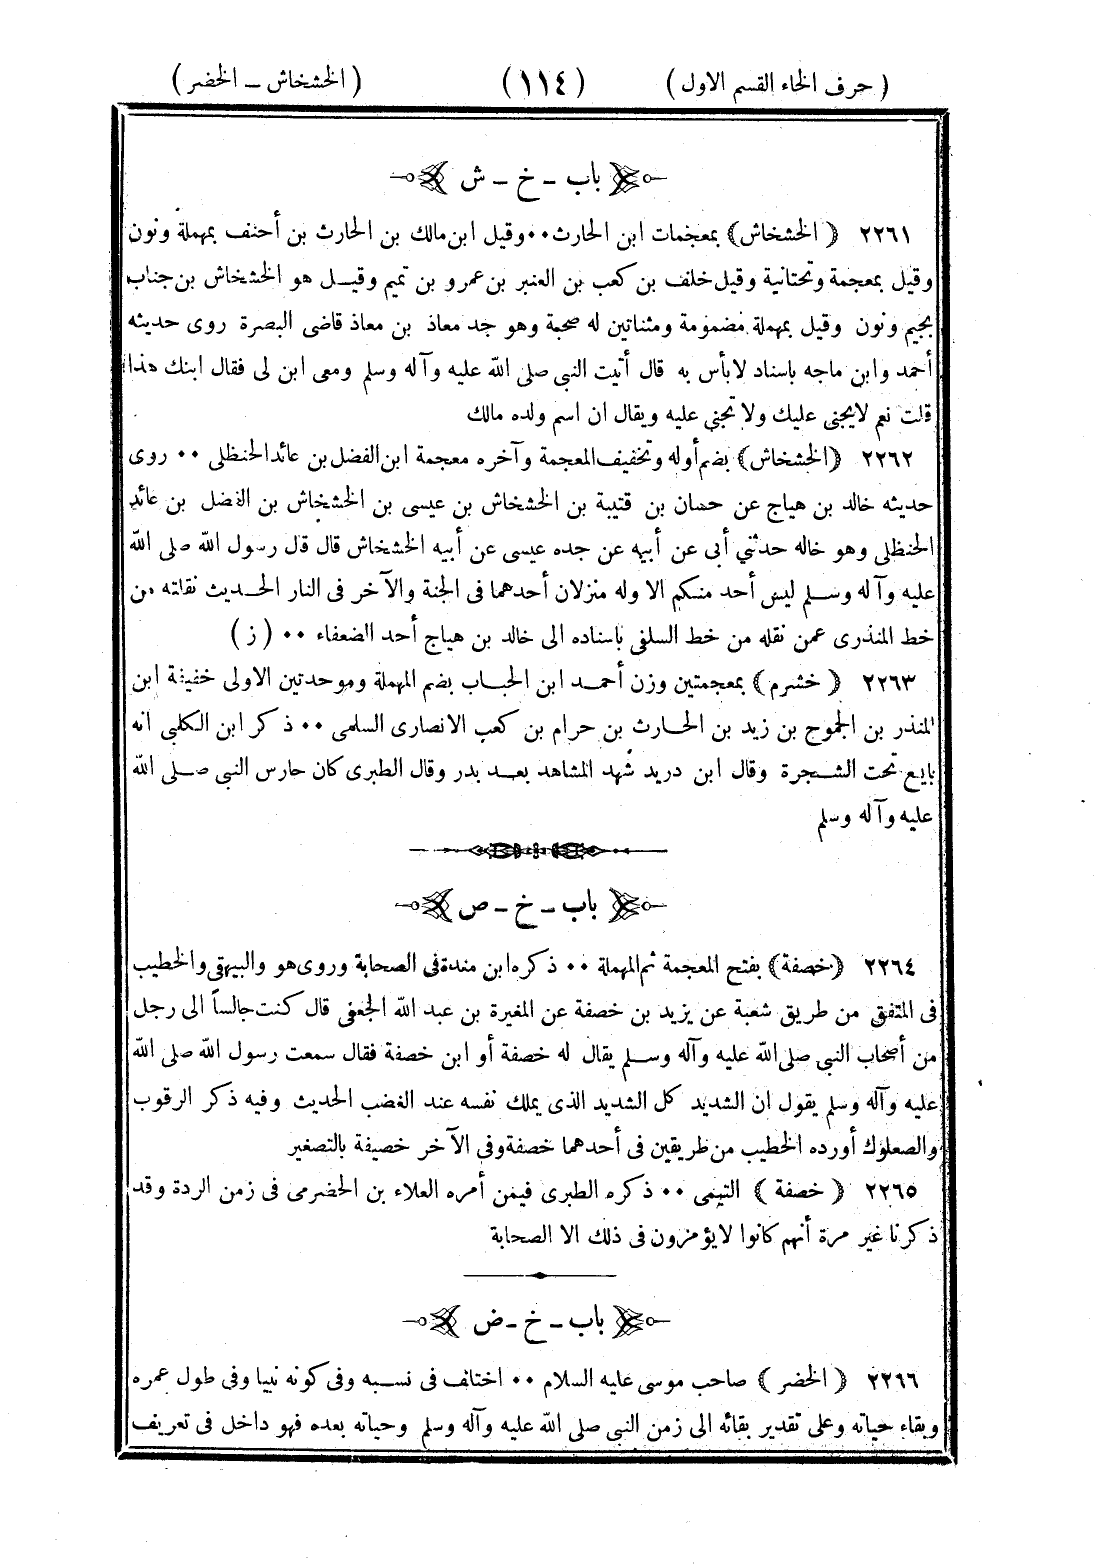 ( حرف الخاء القسم الاول ) ( ١١٤ ) ( الخشخاش ـ الخضر )
باب ـ خ ـ ش
٢٢٦١ ( الخشخاش ) بمعجمات ابن الحارث ٠٠ وقيل ابن مالك بن الحارث بن أحنف بمهملة ونون
وقيل بمعجمة وتحتانية وقيل خلف بن كعب بن العنبر بن عمرو بن تميم وقيل هو الخشخاش بن جناب
بجيم ونون وقيل بمهملة مضمومة ومثناتين له صحبة وهو جد معاذ بن معاذ قاضى البصرة روى حديثه
أحمد وابن ماجه باسناد لا بأس به قال أتيت النبى صلى الله عليه وآله وسلم ومعى ابن لى فقال ابنك هذا
قلت نعم لا يجنى عليك ولا تجنى عليه ويقال ان اسم ولده مالك
٢٢٦٢ ( الخشخاش ) بضم أوله وتخفيف المعجمة وآخره معجمة ابن الفضل بن عائد الحنظلى ٠٠ روى
حديثه خالد بن هياج عن حسان بن قتيبة بن الخشخاش بن عيسى بن الخشخاش بن الفضل بن عائد
الحنظلى وهو خاله حدثني أبى عن أبيه عن جده عيسى عن أبيه الخشخاش قال قل رسول الله صلى الله
عليه وآله وسلم ليس أحد منكم الا وله منزلان أحدهما فى الجنة والآخر فى النار الحديث نقلته من
خط المنذرى عمن نقله من خط السلفى باسناده الى خالد بن هياج أحد الضعفاء ٠٠ ( ز )
٢٢٦٣ ( خشرم ) بمعجمتين وزن أحمد ابن الحباب بضم المهملة وموحدتين الاولى خفيفة ابن
المنذر بن الجموح بن زيد بن الحارث بن حرام بن كعب الانصارى السلمى ٠٠ ذكر ابن الكلبي انه
بايع تحت الشجرة وقال ابن دريد شهد المشاهد بعد بدر وقال الطبرى كان حارس النبى صلى الله
عليه وآله وسلم
باب ـ خ ـ ص
٢٢٦٤ ( خصفة ) بفتح المعجمة ثم المهملة ٠٠ ذكره ابن منده فى الصحابة وروى هو والبيهقى والخطيب
فى المتفق من طريق شعبة عن يزيد بن خصفة عن المغيرة بن عبد الله الجعفى قال كنت جالساً الى رجل
من أصحاب النبى صلى الله عليه وآله وسلم يقال له خصفة أو ابن خصفة فقال سمعت رسول الله صلى الله
عليه وآله وسلم يقول ان الشديد كل الشديد الذى يملك نفسه عند الغضب الحديث وفيه ذكر الرقوب
والصعلوك أورده الخطيب من طريقين فى أحدهما خصفة وفى الآخر خصيفة بالتصغير
٢٢٦٥ ( خصفة ) التيمى ٠٠ ذكره الطبرى فيمن أمره العلاء بن الحضرمى فى زمن الردة وقد
ذكرنا غير مرة أنهم كانوا لا يؤمرون فى ذلك الا الصحابة
باب ـ خ ـ ض
٢٢٦٦ ( الخضر ) صاحب موسى عليه السلام ٠٠ اختلف فى نسبه وفى كونه نبيا وفى طول عمره
وبقاء حياته وعلى تقدير بقائه الى زمن النبى صلى الله عليه وآله وسلم وحياته بعده فهو داخل فى تعريف